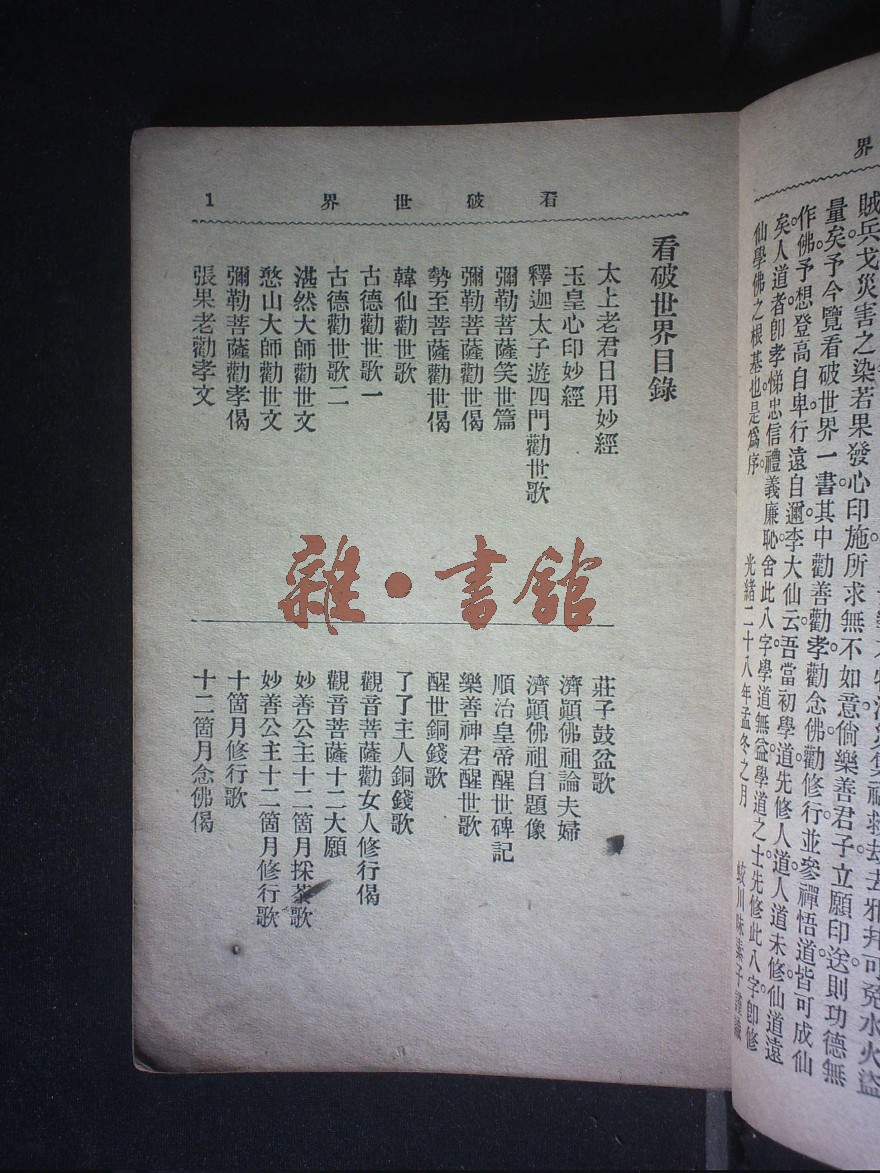 界
賊兵戈災害之染若果發心印施所求無不如意倘樂善君子立願印送則功德無
量矣予今覽看破世界一書其中勸善勸孝勸念佛勸修行並參禪悟道皆可成仙
作佛予想登高自卑行遠自邇李大仙云吾當初學道先修人道人道未修仙道遠
矣人道者卽孝悌忠信禮義廉恥舍此八字學道無益學道之士先修此八字卽修
仙學佛之根基也是爲序
光緒二十八年孟冬之月
看破世界
1
看破世界目錄
太上老君日用妙經
玉皇心印妙經
釋迦太子遊四門勸世歌
彌勒菩薩笑世篇
彌勒菩薩勸世偈
勢至菩薩勸世偈
韓仙勸世歌
古德勸世歌一
古德勸世歌二
湛然大師勸世文
憨山大師勸世文
彌勒菩薩勸孝偈
張果老勸孝文
雜·書館
莊子鼓盆歌
濟顚佛祖論夫婦
濟顚佛祖自題像
順治皇帝醒世碑記
樂善神君醒世歌
醒世銅錢歌
了了主人銅錢歌
觀音菩薩勸女人修行偈
觀音菩薩十二大願
妙善公主十二箇月採茶歌
妙善公主十二箇月修行歌
十箇月修行歌
十二箇月念佛偈